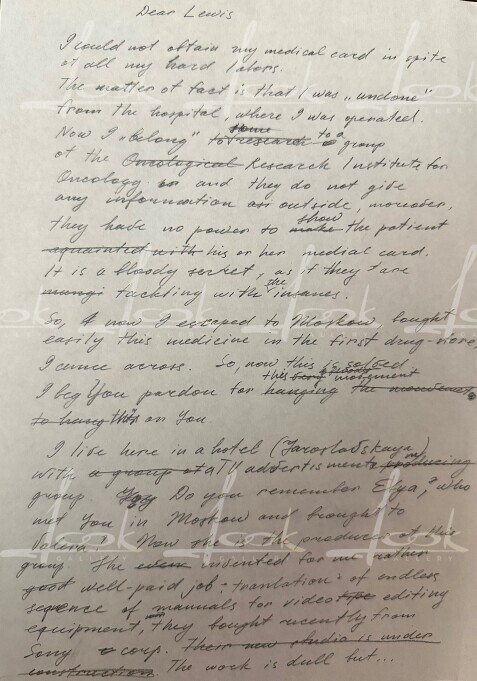 Dear Lewis
I could not obtain my medical card in spite
of all my hard labors.
The matter of fact is that I was „undone"
from the hospital, where I was operated.
Now I „belong" to some research to a group
of the Oncological Research Institute for
Oncology and they do not give
any information on outside, moreover,
they have no power to make show the patient
equainted with his or her medial card.
It is a bloody secret, as if they are
tackling with the insanes.
So, now I escaped to Moskow, bought
easily this medicine in the first drug-store,
I came across. So, now this is solved
I beg You pardon for hanging this assignment the
to hang this on You
I live here in a hotel (Jaroslavskaya)
with a group of a TV advertisments producing my
group. Do you remember Elya, who
met You in Moskow and brought to
Volera? Now she is the producer of this
group. She invented for me rather
good well-paid job: tranlation of endless
seqence of manuals for video editing
equipment, they bought recently from
Sony corp. Their new studio is under
construction. The work is dull but...
look
look
look